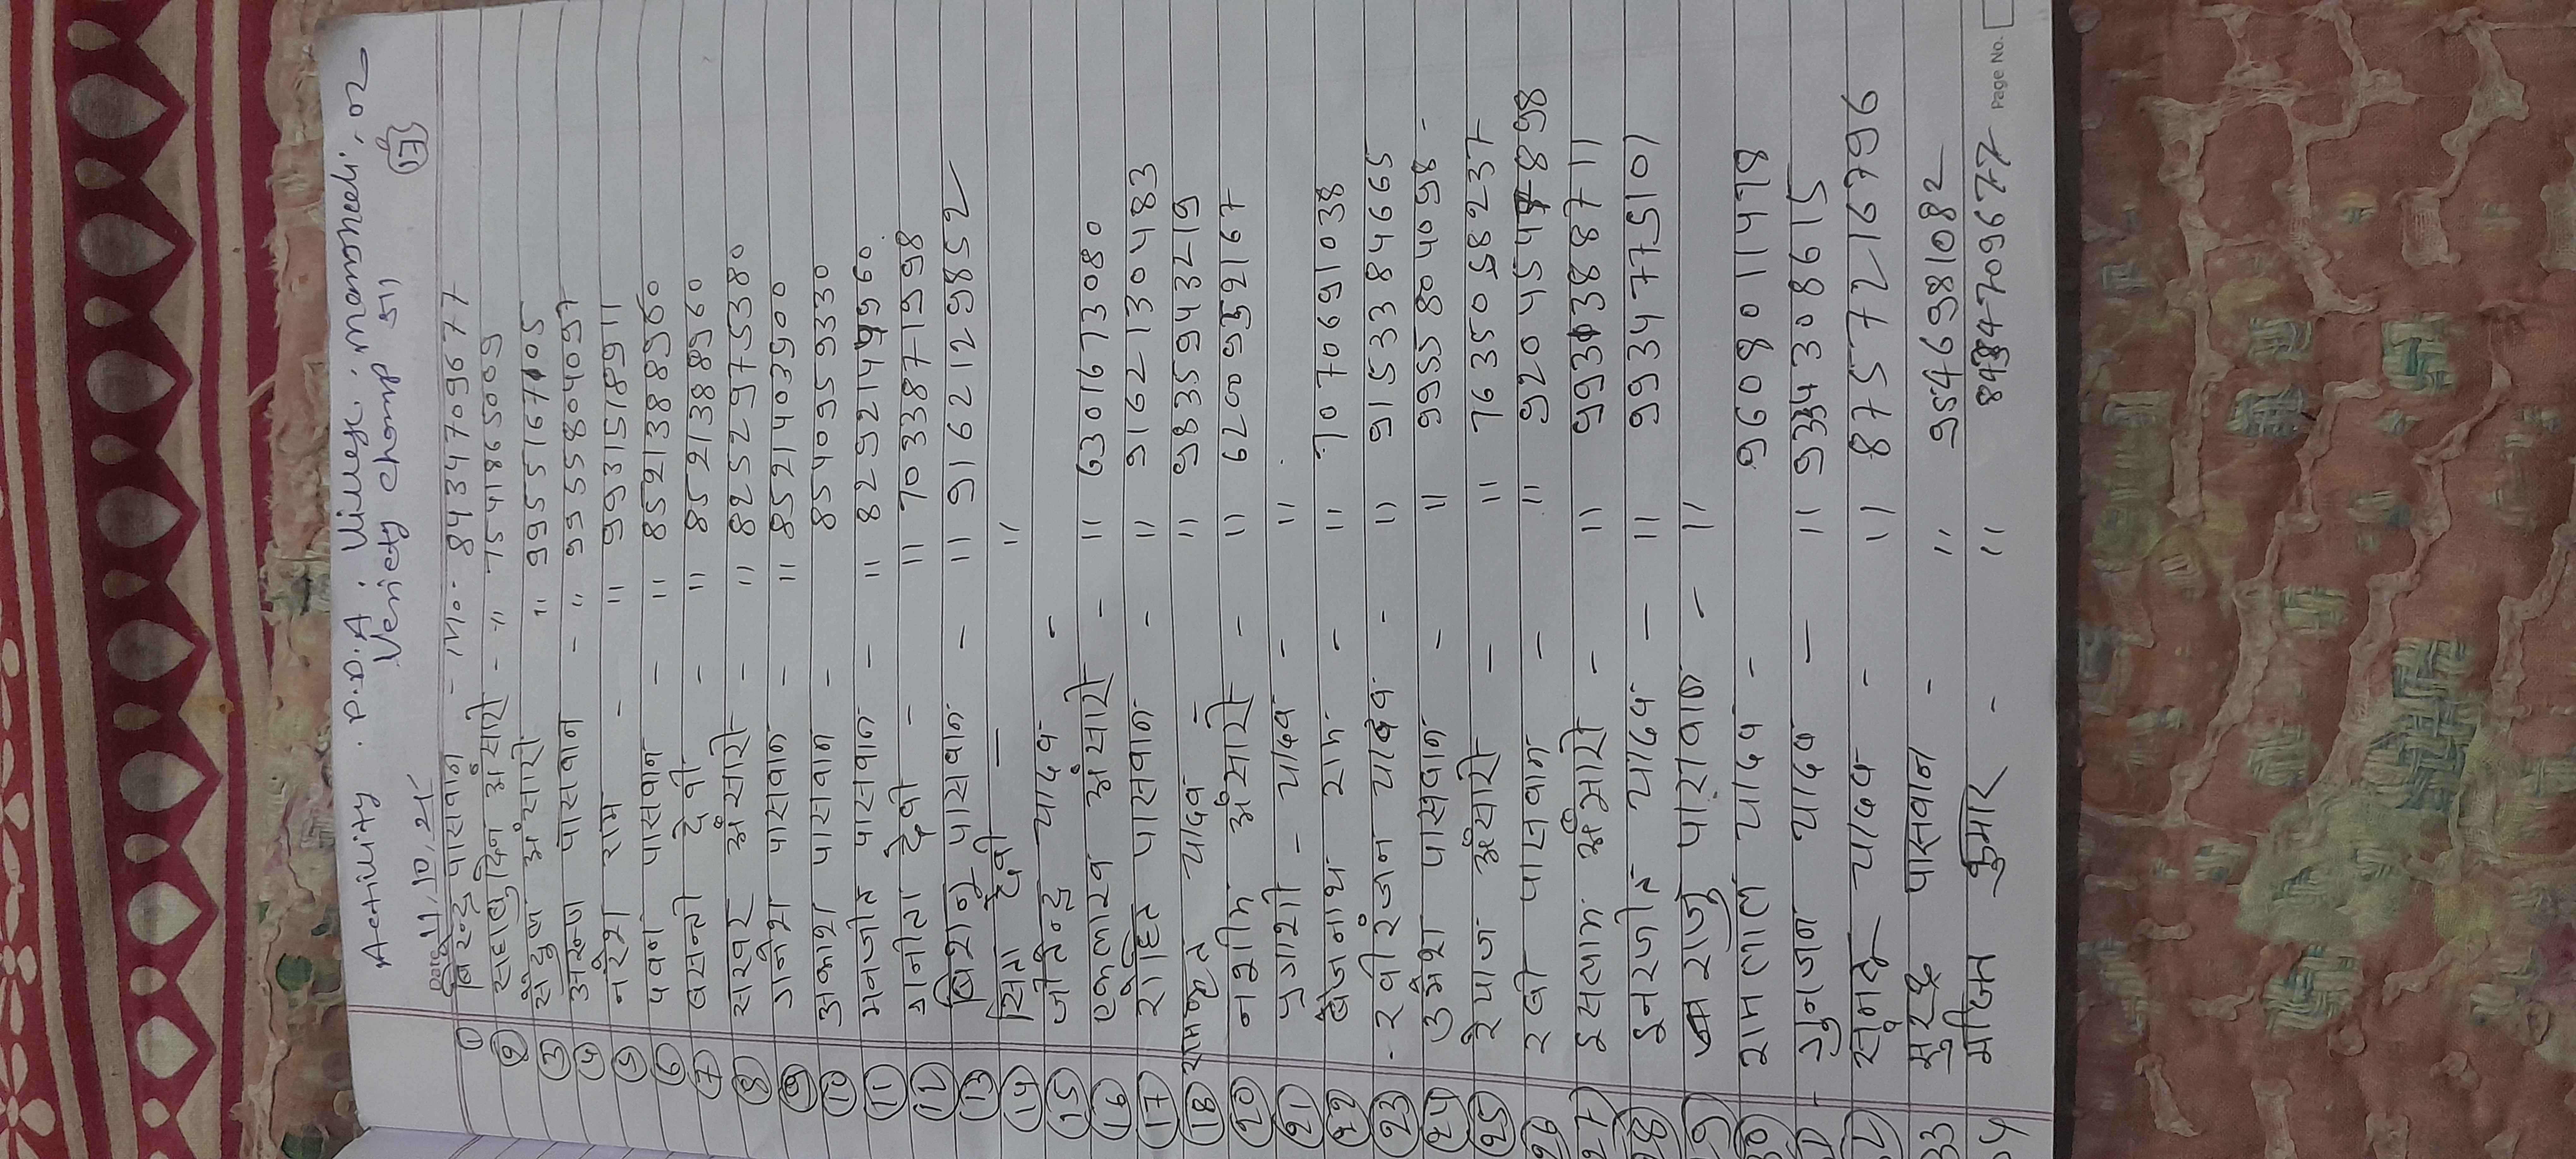 Activity. P.D.A: Village: manomedi, 02
Date 11.10.25 Veriety champ 51 17
① बिरेन्द्र पासवान - मो. 8434709677
② सहाबुदिन अंसारी - " 7541865009
③ सैदुण अंसारी " 9955167105
④ अरुण पासवान - " 9955804097
⑤ नरेश राम - " 9931518911
⑥ पवन पासवान - " 8521388960
⑦ बसन्ती देवी - " 8521388960
⑧ सरवर अंसारी - " 8252975380
⑨ गनेश पासवान - " 8521403900
⑩ अकाश पासवान - 8540959330
⑪ मनजीत पासवान - " 8292144960
⑫ गनीता देवी - " 7033871998
⑬ बिशनु पासवान - " 9162129852
⑭ सिता देवी - "
⑮ जीतेन्द्र यादव -
⑯ एकलाख अंसारी - " 6301673080
⑰ रोहित पासवान - " 9162130483
⑱ यादव " 9835943219
⑳ नशीम अंसारी - " 6200952167
㉑ यादव - "
㉒ बैजनाथ राम - " 7070691038
㉓ - रवीरंजन यादव - " 9153384665
㉔ उमेश पासवान - " 9955804098 -
㉕ रेयाज अंसारी - " 7635058237
26 रवी पासवान - " 920454 898
27 इसलाम अंसारी - " 9931388711
28 इनरजीत यादव - " 9934775101
29 राजु पासवान - "
30 रामलाल यादव - 9608011478
- गुनजन यादव - " 9334308615
यादव - " 8757216796
33 पासवान - " 9546981082
34 कुमार - " 8434709677
Page No.